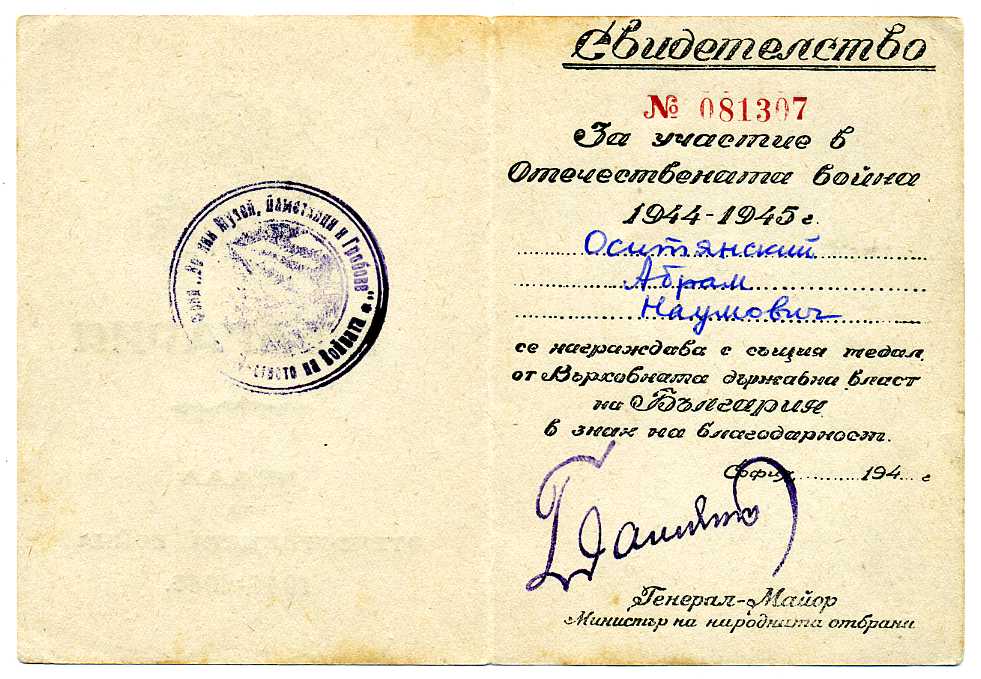 Музей, Паметници и Гробове
на Войната
Свидетелство
№ 081307
За участие в
Отечествената война
1944-1945 г.
Оситянский
Абрам
Наумович
се награждава с същия медал
от Върховната държавна власт
на България
в знак на благодарност.
София............194....г
Генерал-Майор
Министър на народната отбрана